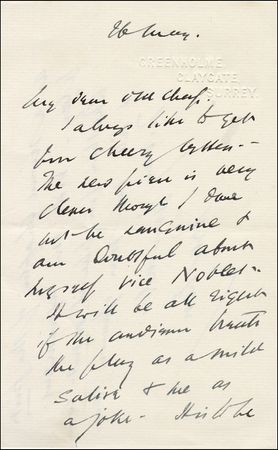 26 May.
GREENHOLME,
CLAYGATE,
SURREY.
My dear old chap.
I always like to get
your cheery letters --
The new piece is very
clever though I dare
not be sanguine &
am doubtful about
myself vice Nobles --
It will be all right
if the audience treats
the play as a mild
satire & me as
a joke -- It'll be